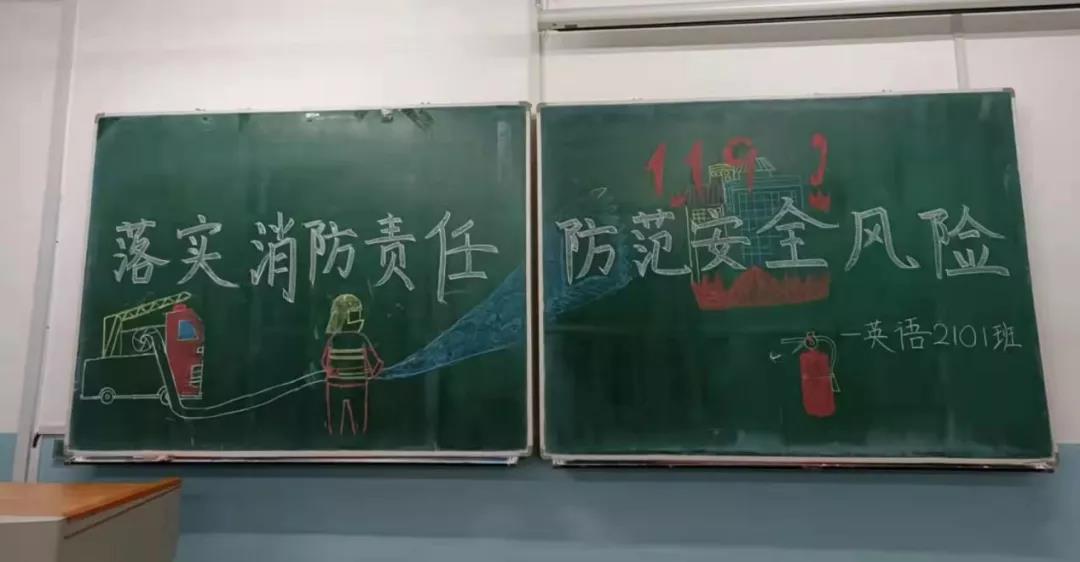 落实消防责任
119
防范安全风险
一英语2101班